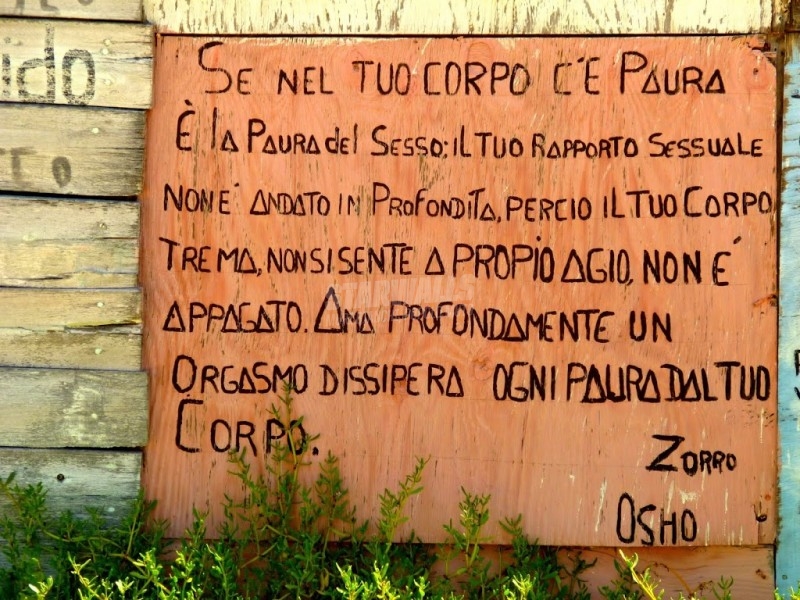 ido
SE NEL TUO CORPO C'È PAURA
È la PAURA del SESSO: IL TUO RAPPORTO SESSUALE
NON E' ANDATO IN PROFONDITA, PERCIO IL TUO CORPO
TREMA, NON SI SENTE A PROPIO AGIO, NON E'
APPAGATO. AMA PROFONDAMENTE UN
ORGASMO DISSIPERA OGNI PAURA DAL TUO
CORPO.
ZORRO
OSHO